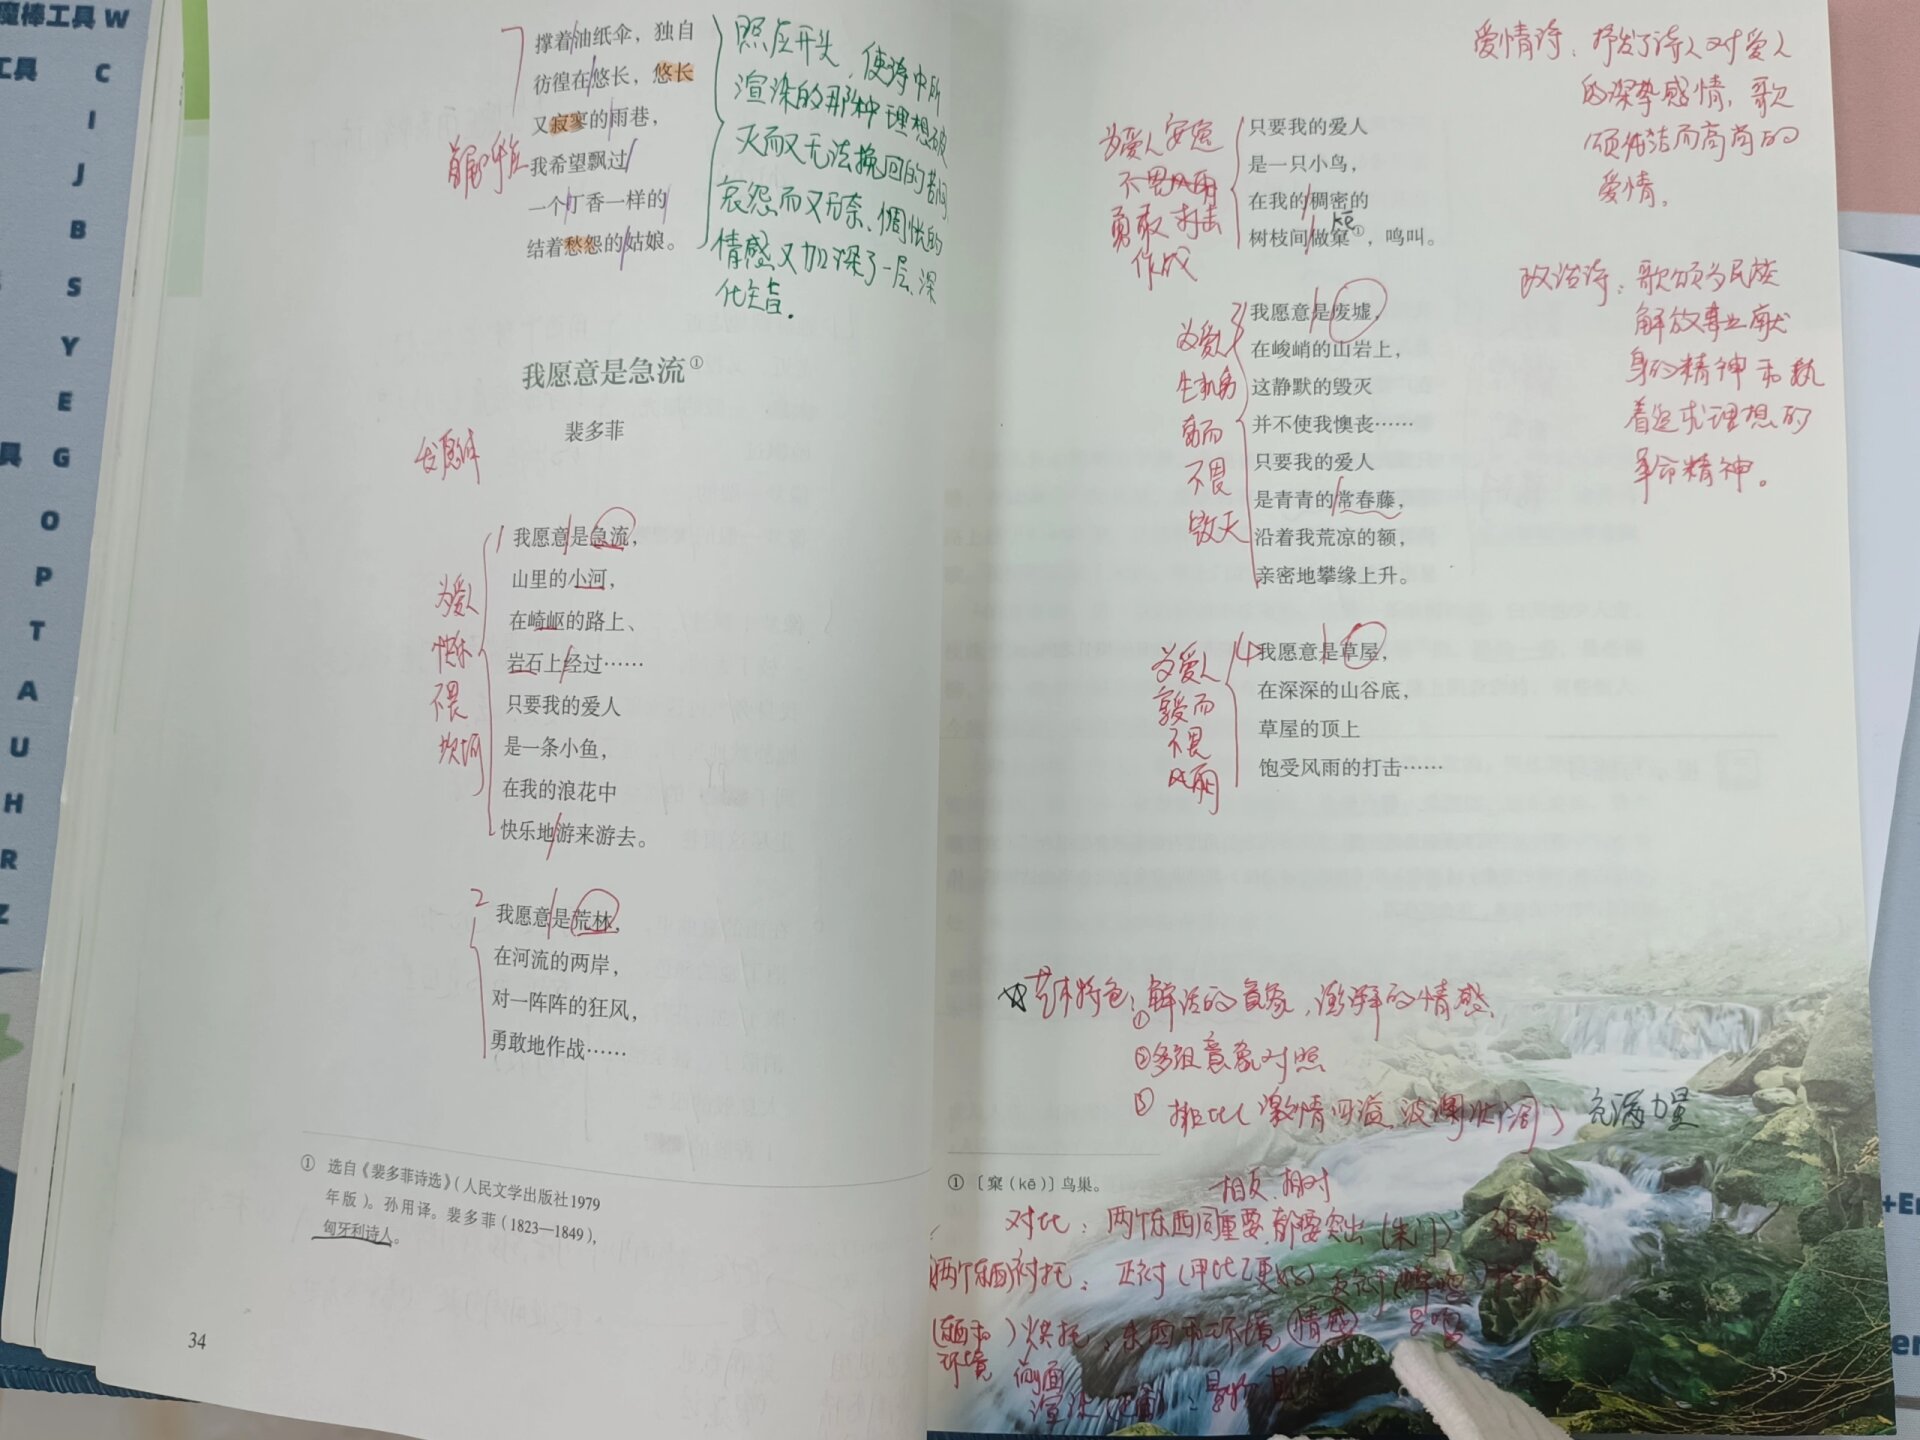 魔棒工具 W
工具 C
I
J
B
S
Y
E
具 G
O
P
T
A
U
H
R
Z
撑着油纸伞，独自
彷徨在悠长，悠长
又寂寥的雨巷，
我希望飘过
一个丁香一样的
结着愁怨的姑娘。
首尾呼应
照应开头，使诗中所
渲染的那种理想破
灭而又无法挽回的苦闷
哀怨而又无奈、惆怅的
情感又加深了一层，深
化主旨。
我愿意是急流①
裴多菲
发愿体
1
我愿意是急流，
山里的小河，
在崎岖的路上、
岩石上经过……
只要我的爱人
是一条小鱼，
在我的浪花中
快乐地游来游去。
为爱人
快乐
不畏
坎坷
2
我愿意是荒林，
在河流的两岸，
对一阵阵的狂风，
勇敢地作战……
① 选自《裴多菲诗选》（人民文学出版社1979
年版）。孙用译。裴多菲（1823—1849），
匈牙利诗人。
34
只要我的爱人
是一只小鸟，
在我的稠密的
kē
树枝间做窠①，鸣叫。
为爱人安危
不畏风雨
勇敢打击
作战
3
我愿意是废墟，
在峻峭的山岩上，
这静默的毁灭
并不使我懊丧……
只要我的爱人
是青青的常春藤，
沿着我荒凉的额，
亲密地攀缘上升。
为爱人
生机勃
勃而
不畏
毁灭
4
我愿意是草屋，
在深深的山谷底，
草屋的顶上
饱受风雨的打击……
为爱人
而
不畏
风雨
爱情诗：抒发了诗人对爱人
的深挚感情，歌
颂纯洁而高尚的
爱情。
政治诗：歌颂为民族
解放事业献
身的精神和执
着追求理想的
革命精神。
艺术特色：①鲜活的意象，澎湃的情感
②多组意象对照
③排比（激情四溢，波澜壮阔） 充满力量
① ［窠（kē）］鸟巢。
相反、相对
对比：两个东西同重要，都要突出（朱门） 强烈
（两个东西）衬托：正衬（甲比乙更好）反衬
（东西和环境）烘托：东西和环境（情感）
渲染
35
+En
en